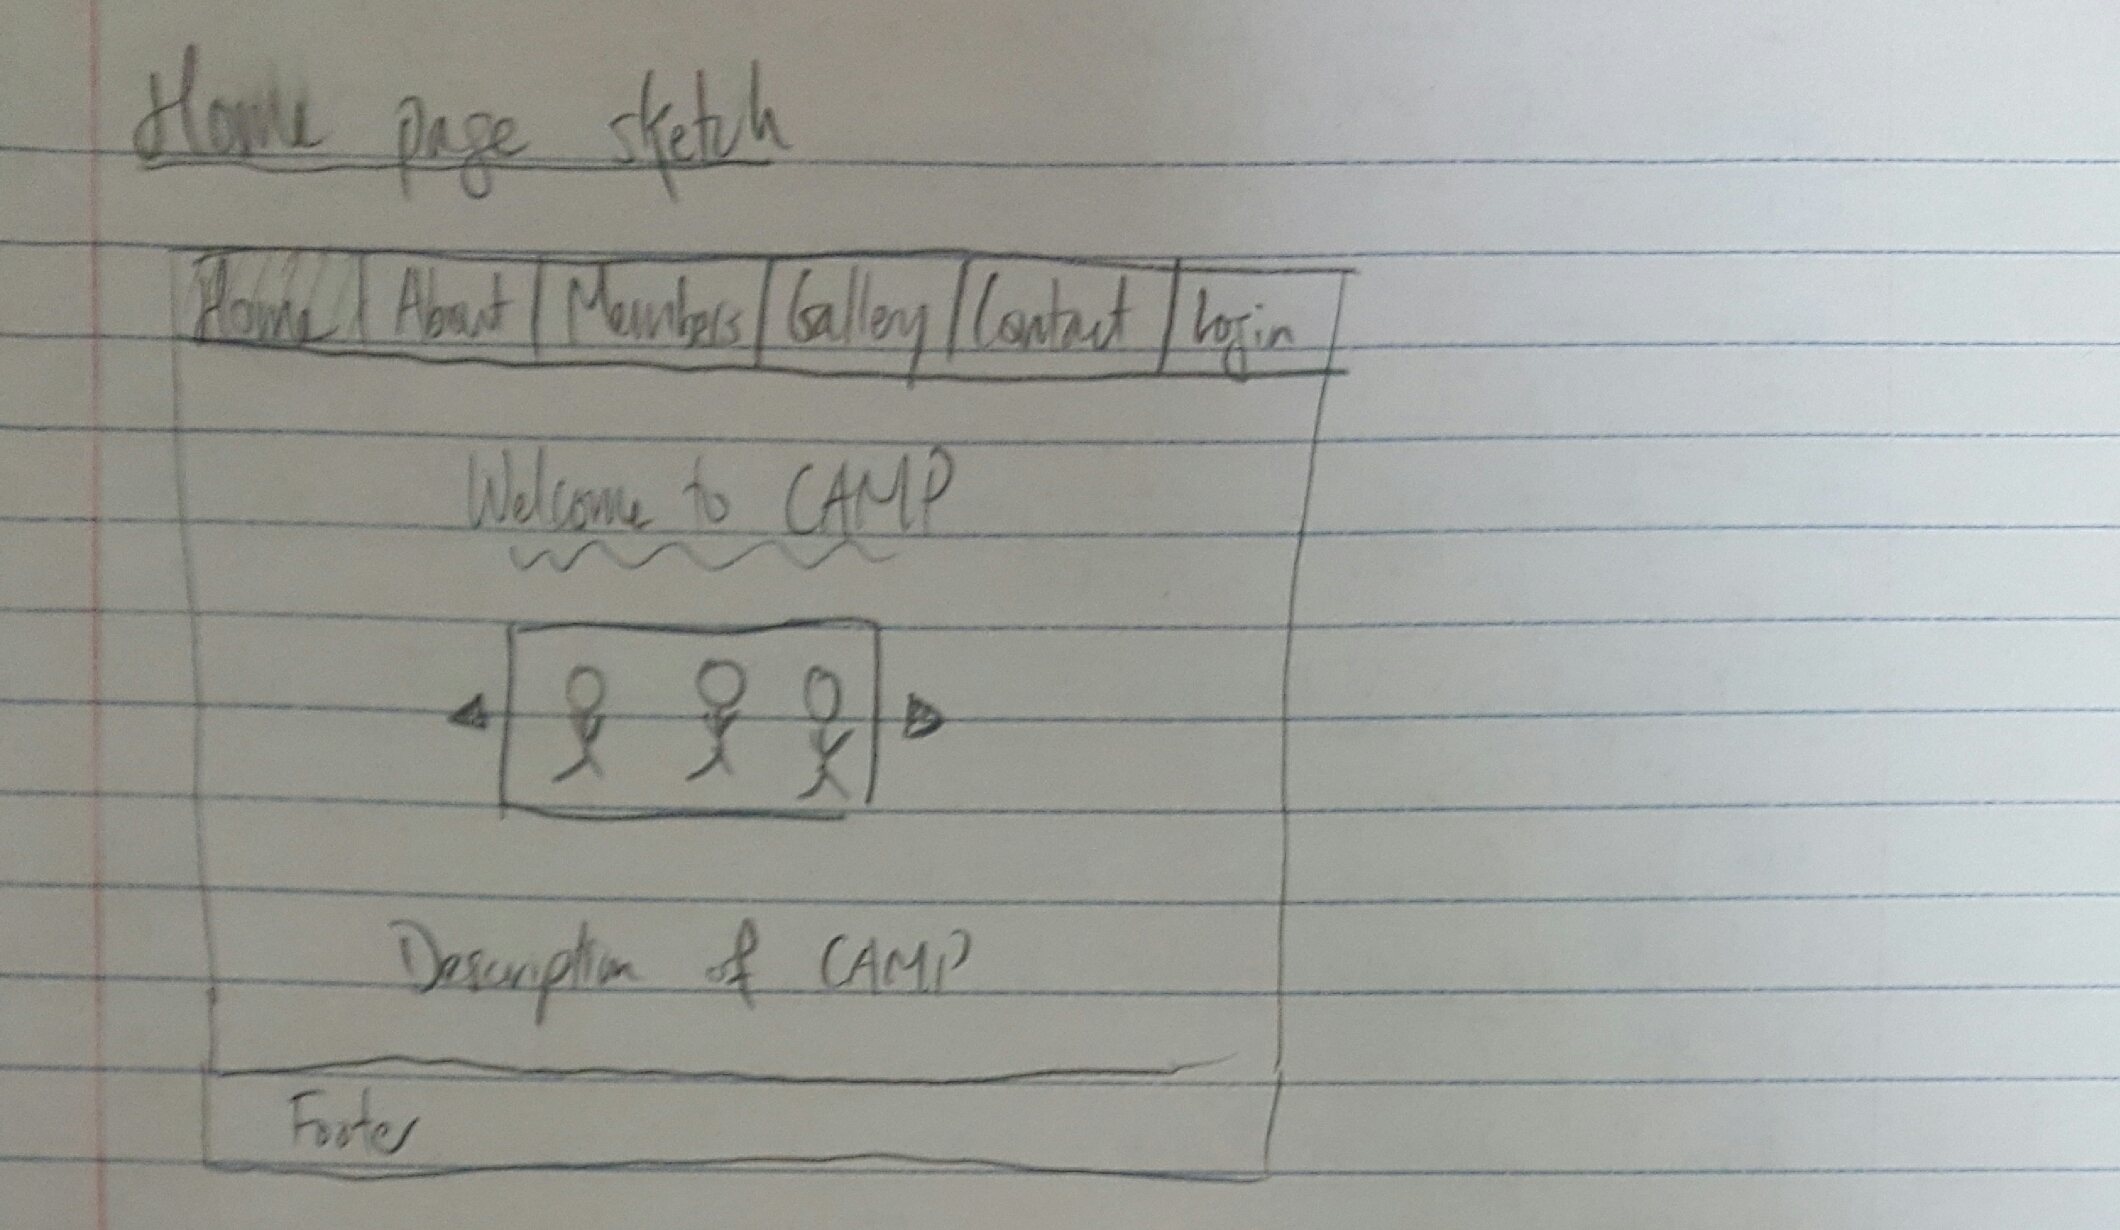 Home page sketch
Home About Members Gallery Contact Login
Welcome to CAMP
Description of CAMP
Footer